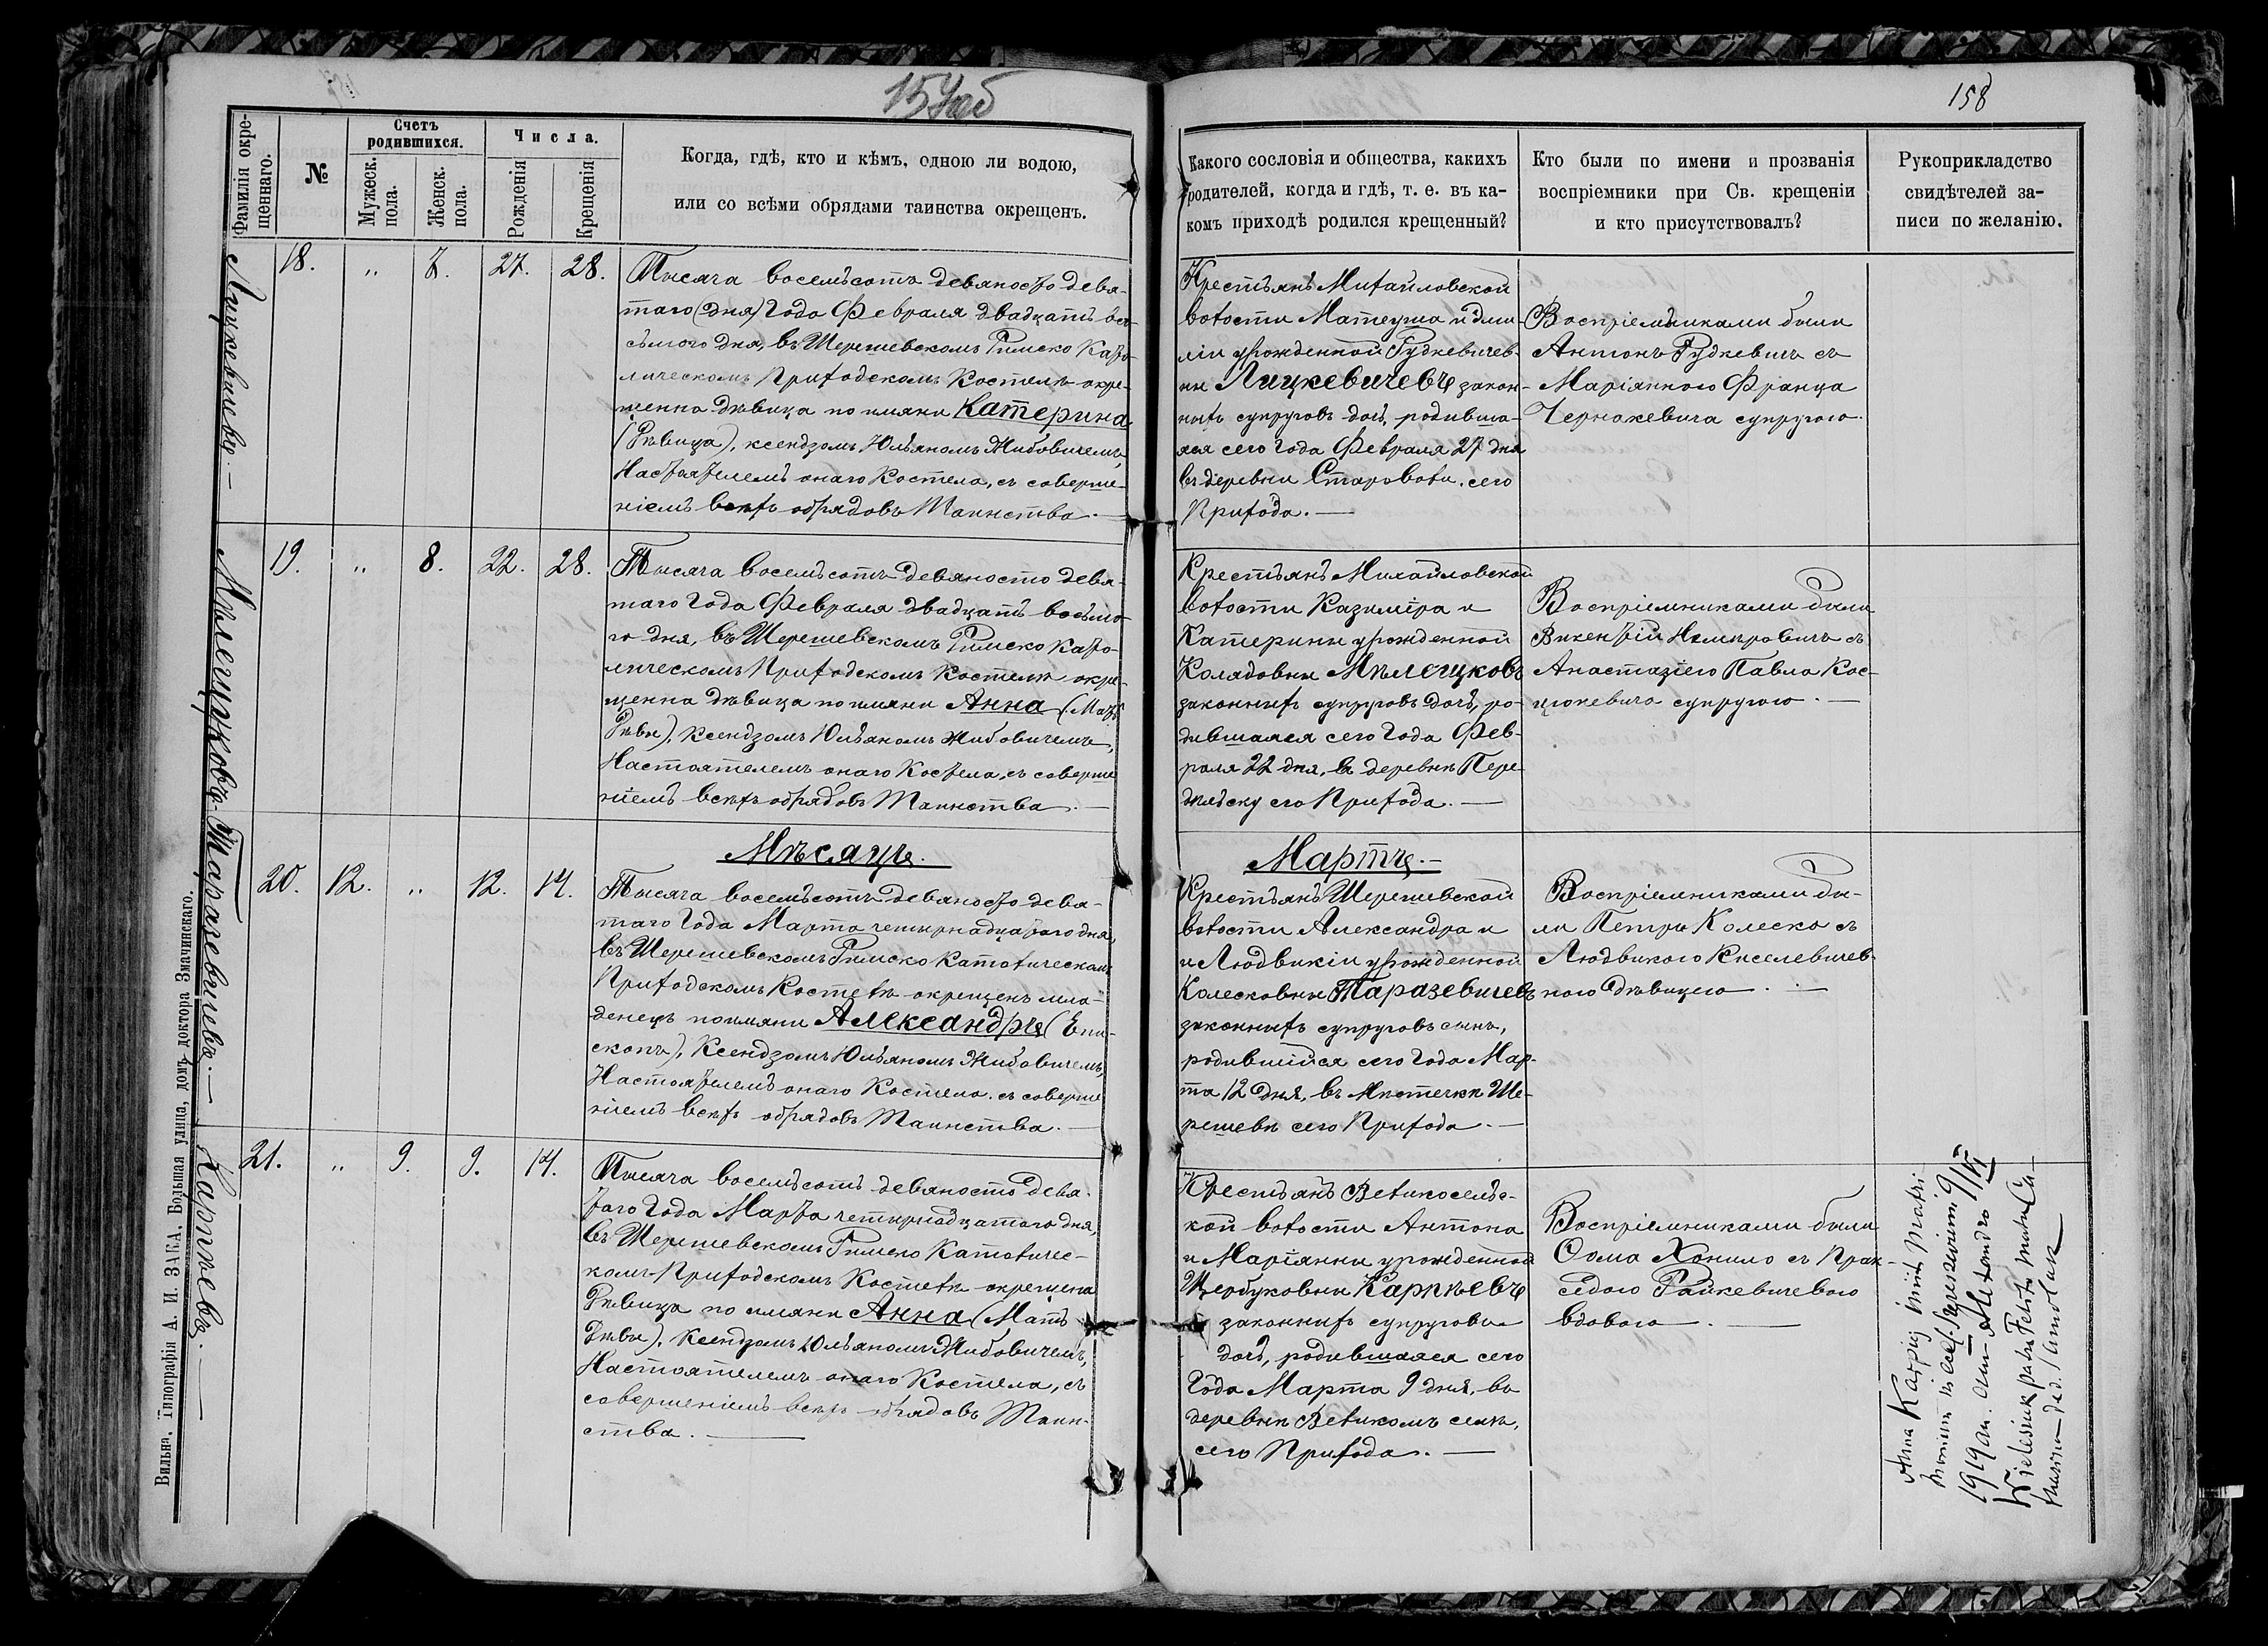 157об
158
Фамилія окре-
щеннаго.
№
Счетъ
родившихся.
Мужеск.
пола.
Женск.
пола.
Числа.
Рожденія
Крещенія
Когда, гдѣ, кто и кѣмъ, одною ли водою,
или со всѣми обрядами таинства окрещенъ.
Какого сословія и общества, какихъ
родителей, когда и гдѣ, т. е. въ ка-
комъ приходѣ родился крещенный?
Кто были по имени и прозванія
воспріемники при Св. крещеніи
и кто присутствовалъ?
Рукоприкладство
свидѣтелей за-
писи по желанію.
Лицкевичевъ.—
18. „ 7. 27. 28.
Тысяча восемьсотъ девяносто девя-
таго (дня) Года Февраля двадцать вось-
сьмого дня, въ Шерешевскомъ Римско Като-
лическомъ Приходскомъ Костелѣ окре-
щенна дѣвица по имяни Катерина
(Дѣвица), ксендзомъ Юльяномъ Жибовичемъ,
Настоятелемъ онаго Костела, съ соверше-
ніемъ всѣхъ обрядовъ Таинства.—
Крестьянъ Михайловской
волости Матеуша и Эми-
ліи урожденной Рудкевичев-
ны Лицкевичевъ закон-
ныхъ супруговъ дочь, родивша-
яся сего Года Февраля 27 дня
въ деревни Староволи, сего
Прихода.—
Воспріемниками были
Антонъ Рудкевичъ съ
Маріянною Франца
Чернакевича супругою.
Мѣлешковъ.
19. „ 8. 22. 28.
Тысяча восемьсотъ девяносто девя-
таго Года Февраля двадцать восьмо-
го дня, въ Шерешевскомъ Римско Като-
лическомъ Приходскомъ Костелѣ окре-
щенна дѣвица по имяни Анна (Мать
Дѣвы), Ксендзомъ Юльяномъ Жибовичемъ,
Настоятелемъ онаго Костела, съ соверше
ніемъ всѣхъ обрядовъ Таинства.—
Крестьянъ Михайловской
волости Казиміра и
Катерины урожденной
Колядовны Мѣлешковъ
законныхъ супруговъ дочь, ро-
дившаяся сего Года Фев-
раля 22 дня, въ деревнѣ Пере-
дѣльску сего Прихода.—
Воспріемниками были
Викентій Немировичъ съ
Анастазіею Павла Кос-
цюкевича супругою.—
Мѣсяцъ.
Мартъ.—
Таразевичевъ.—
20. 12. „ 12. 14.
Тысяча восемьсотъ девяносто девя-
таго Года Марта четырнадцатаго дня,
въ Шерешевскомъ Римско Католическомъ
Приходскомъ Костелѣ окрещенъ мла-
денецъ по имяни Александръ (Епи-
скопъ), Ксендзомъ Юльяномъ Жибовичемъ,
Настоятелемъ онаго Костела, съ соверше
ніемъ всѣхъ обрядовъ Таинства.—
Крестьянъ Шерешевской
волости Александра и
и Людвикіи урожденной
Колесковны Таразевичевъ
законныхъ супруговъ сынъ,
родившійся сего Года Мар-
та 12 дня, въ Мѣстечкѣ Ше-
решевѣ сего Прихода.—
Воспріемниками бы-
ли Петръ Колеско съ
Людвикою Киселевичев-
ною дѣвицею.—
Карпѣевъ.—
21. „ 9. 9. 14.
Тысяча восемьсотъ девяносто девя-
таго Года Марта четырнадцатаго дня,
въ Шерешевскомъ Римско Католичес-
комъ Приходскомъ Костелѣ окрещена
Дѣвица по имяни Анна (Мать
Дѣвы), Ксендзомъ Юльяномъ Жибовичемъ,
Настоятелемъ онаго Костела, съ
совершеніемъ всѣхъ обрядовъ Таин-
ства.—
Крестьянъ Великосельс-
кой волости Антона
и Маріянны урожденной
Щербуковны Карпѣевъ
законныхъ супруговъ
дочь, родившаяся сего
Года Марта 9 дня, въ
деревнѣ Великомъ селѣ,
сего Прихода.—
Воспріемниками были
Ѳома Хонило съ Прак-
седою Райкевичевою
вдовою.—
Anna Karpiej iniit Matri-
monium in eccl. Szereszoviensi 9/VI
1919 an. cum Alexandro
Вильна, Типографія А. И. ЗАКА, Большая улица, домъ доктора Змачинскаго.